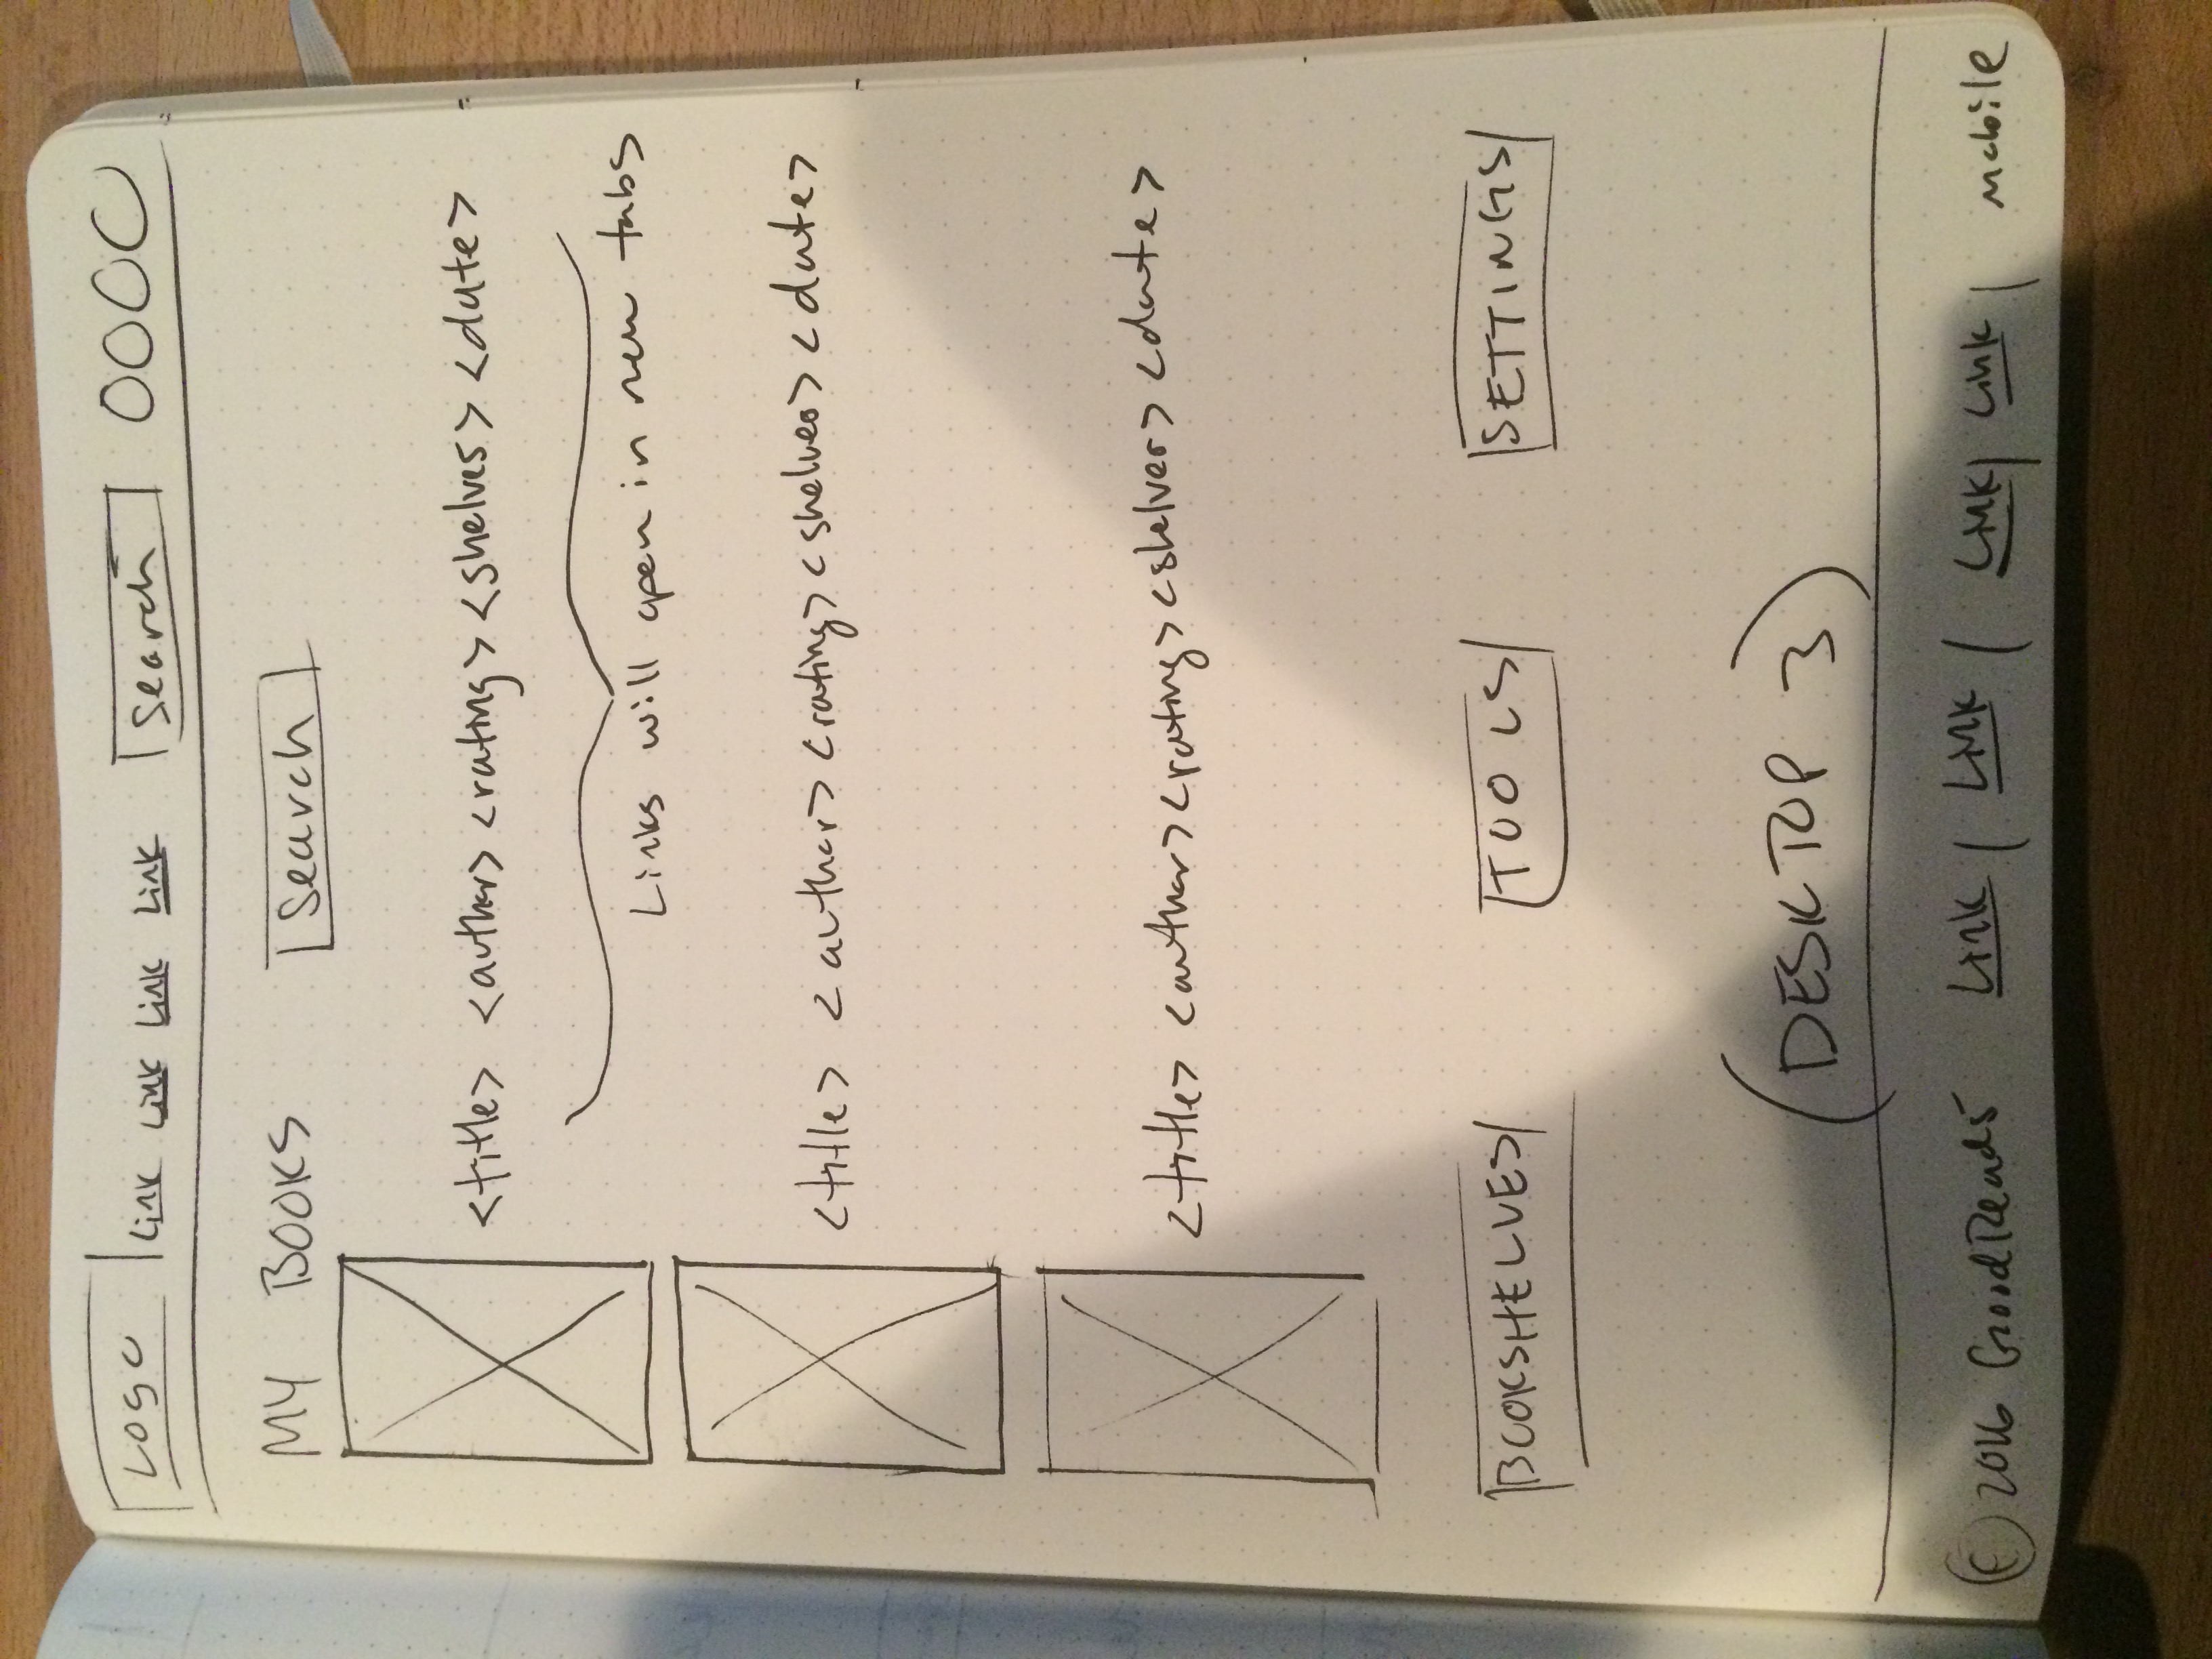 Logo Link Link Link Link Search
MY BOOKS Search
<title> <author> <rating> <shelves> <date>
Links will open in new tabs
<title> <author> <rating> <shelves> <date>
<title> <author> <rating> <shelves> <date>
BOOKSHELVES TOOLS SETTINGS
(DESKTOP 3)
© 2016 GoodReads Link | Link | Link | Link | mobile